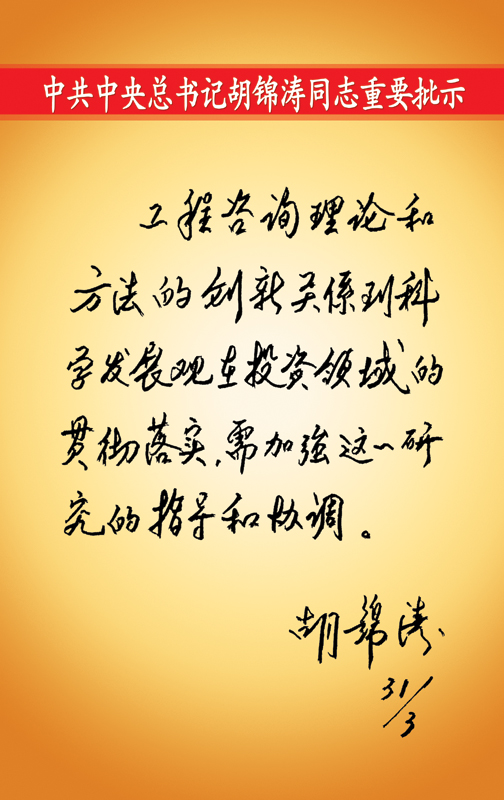 中共中央总书记胡锦涛同志重要批示
工程咨询理论和
方法的创新关係到科
学发展观在投资领域的
贯彻落实,需加强这一研
究的指导和协调。
胡锦涛
31/3